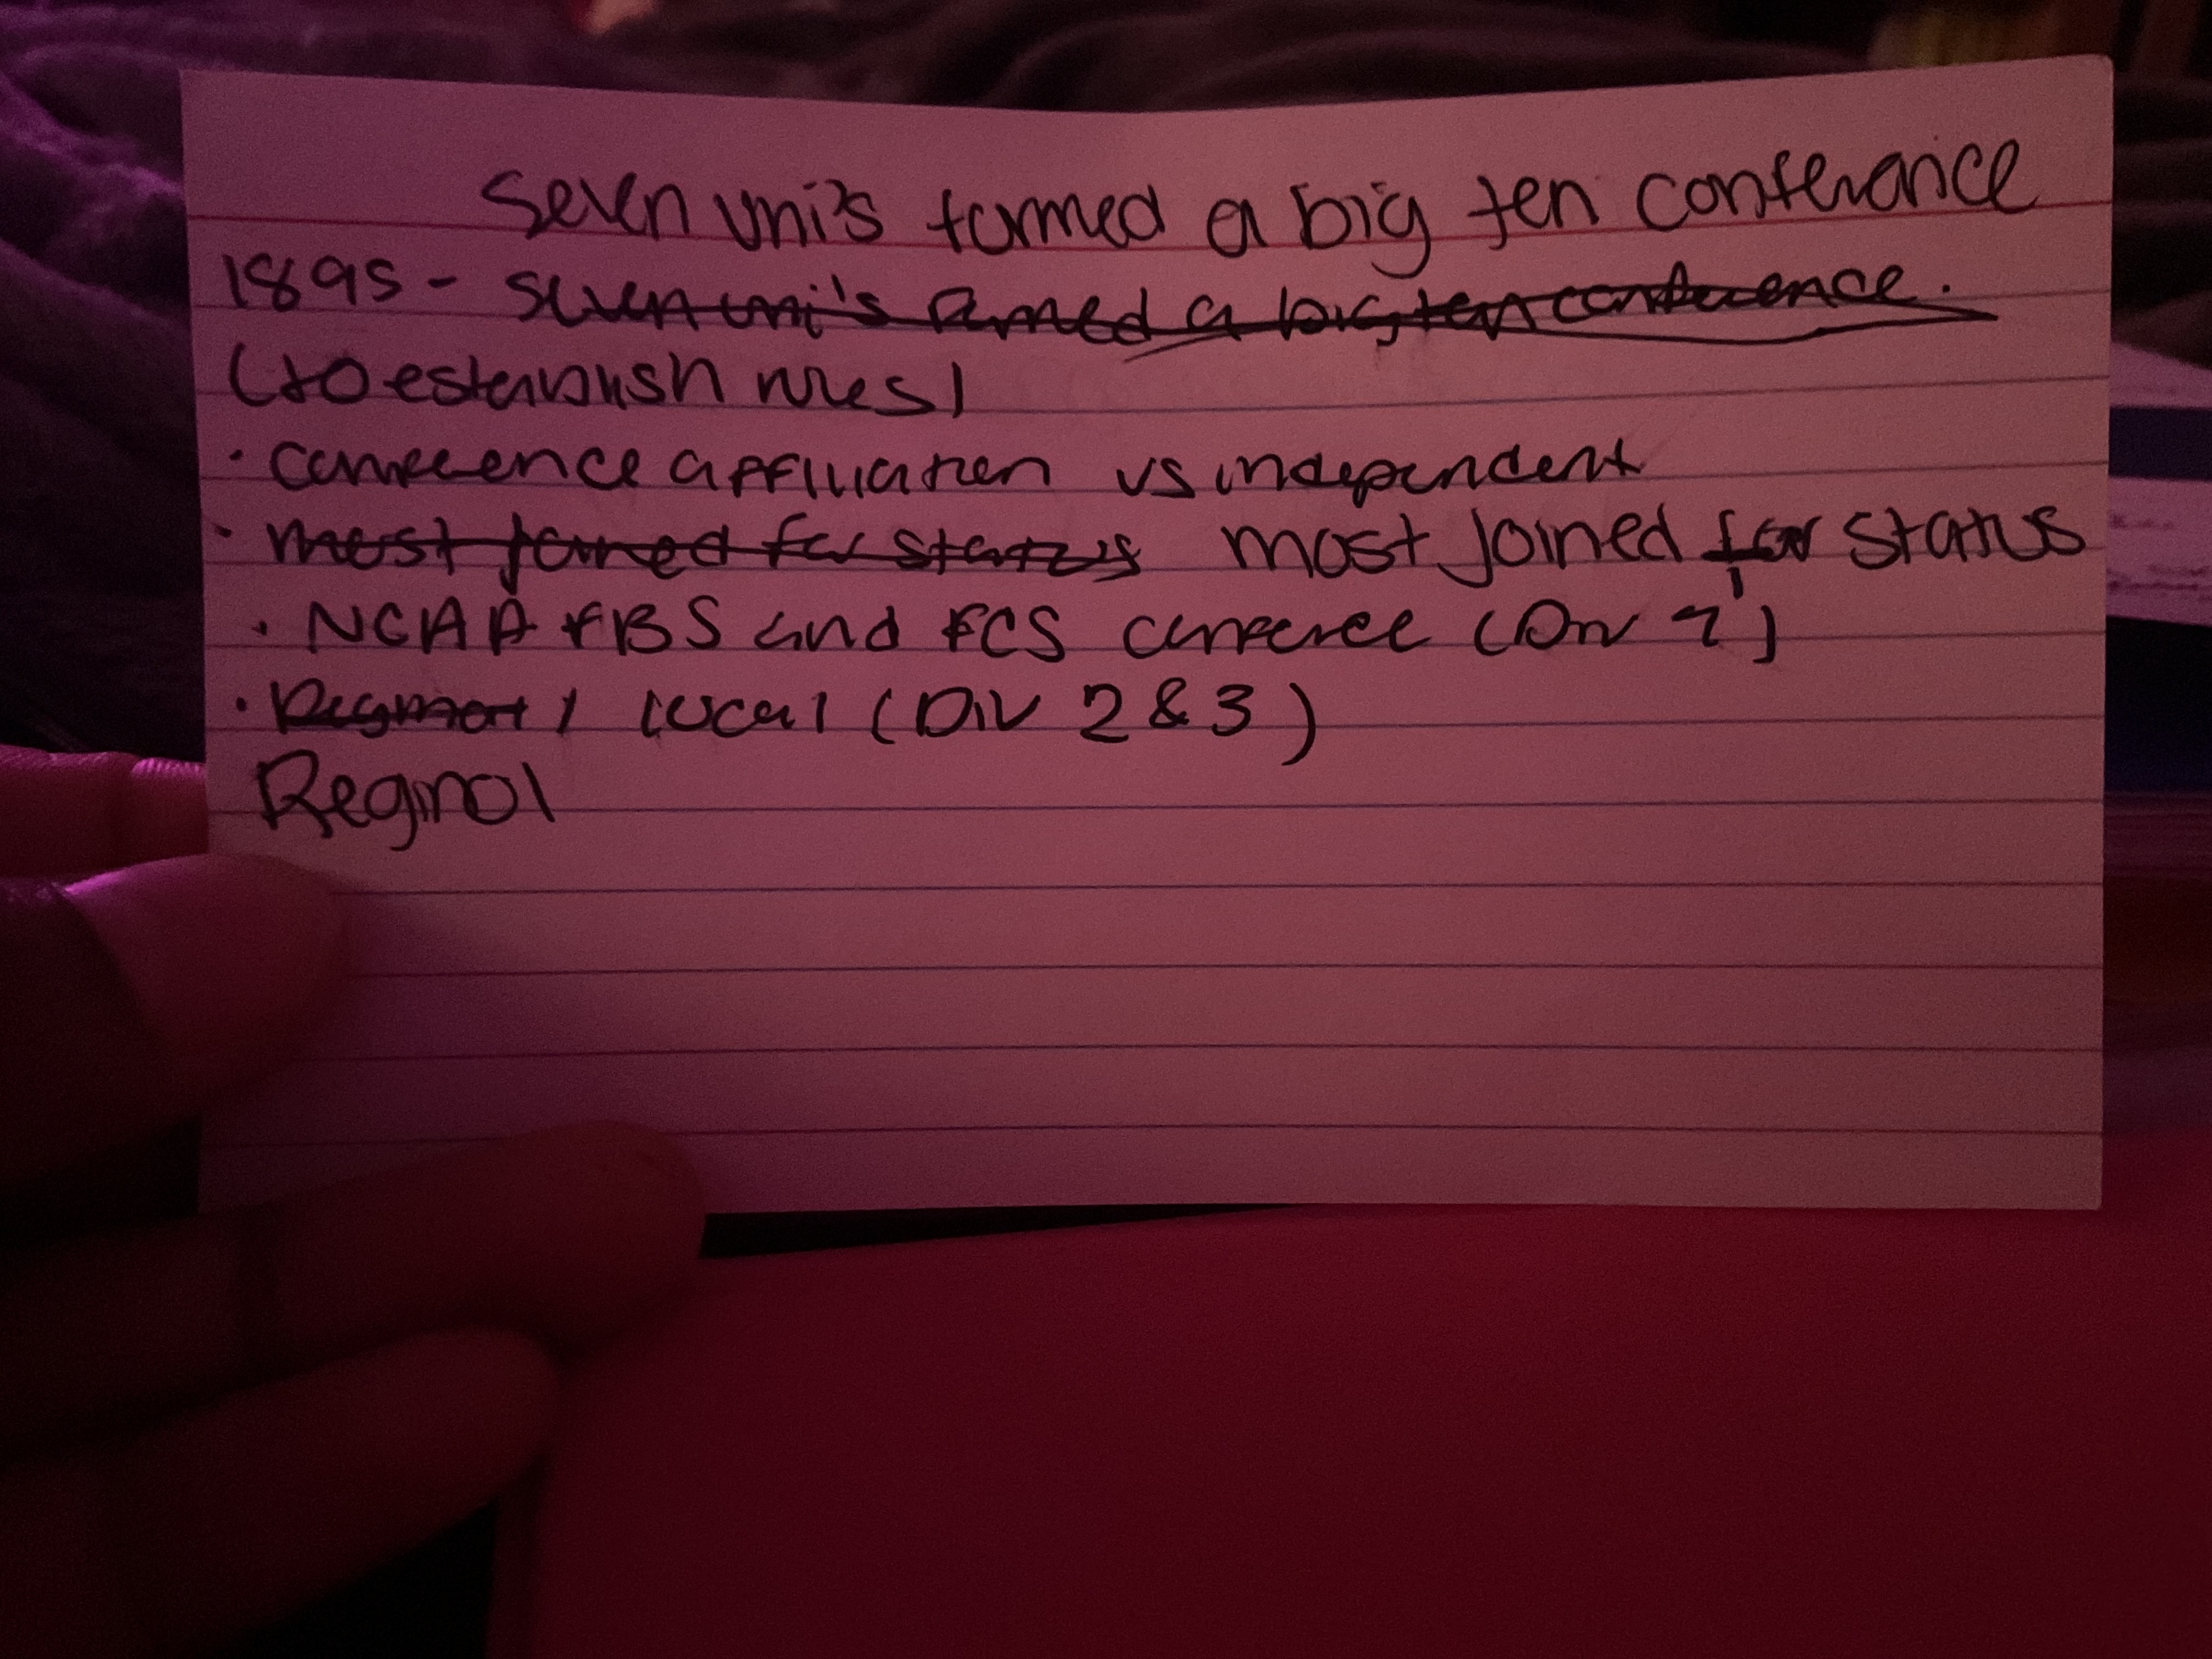 Seven uni's formed a big ten conferance
1895 - seven uni's formed a big ten conference.
(to establish rules)
· conference affiliation vs independent
· most joined for status most joined for status
· NCAA FBS and FCS (Div 1)
· / local (Div 2 & 3)
Reginol